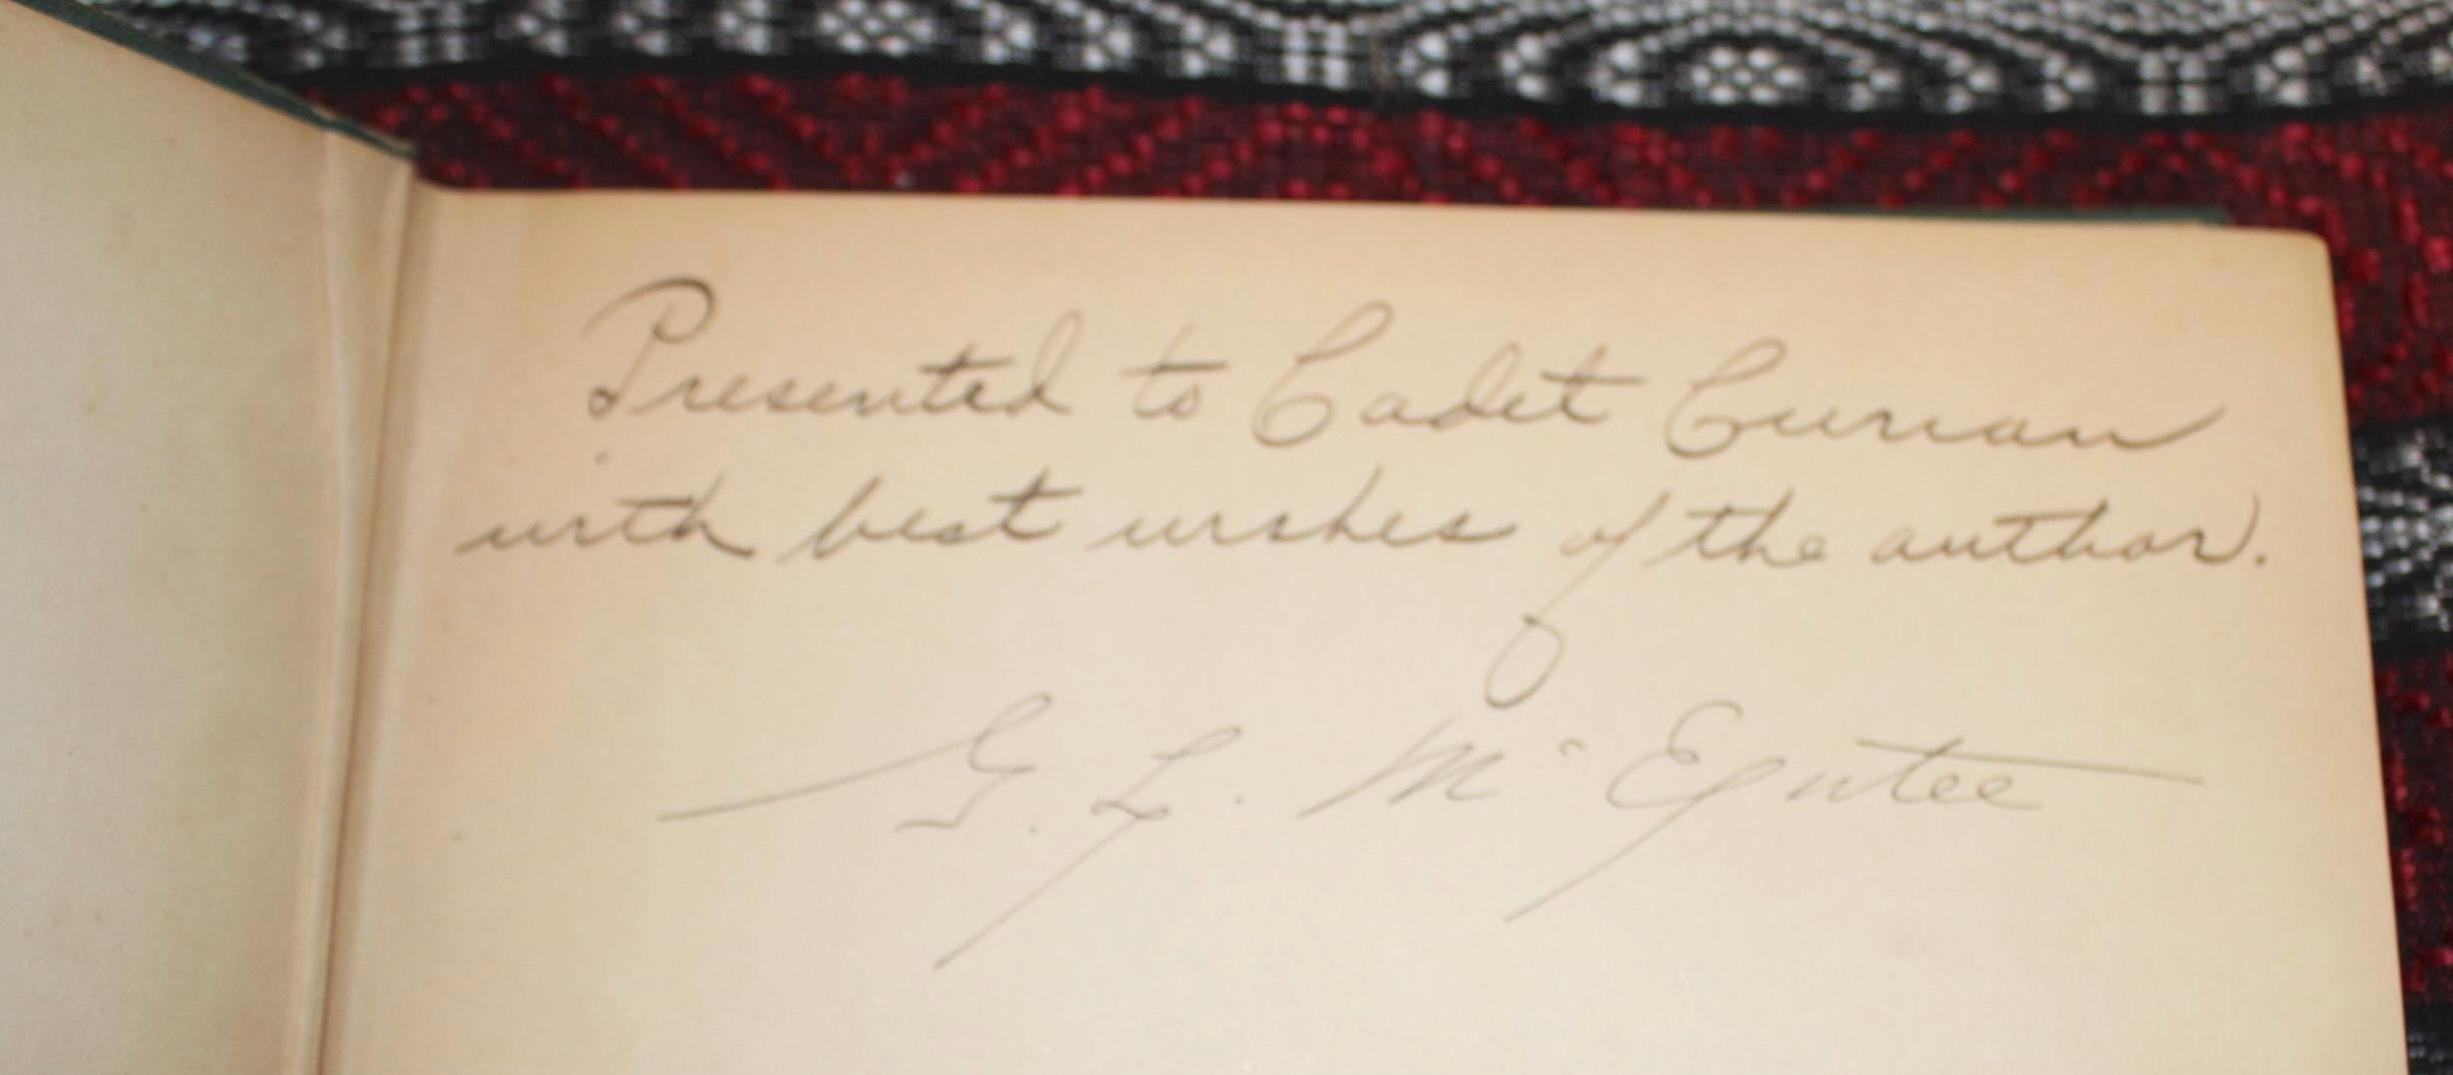 Presented to Cadet Curran
with best wishes of the author.
G. L. McEntee